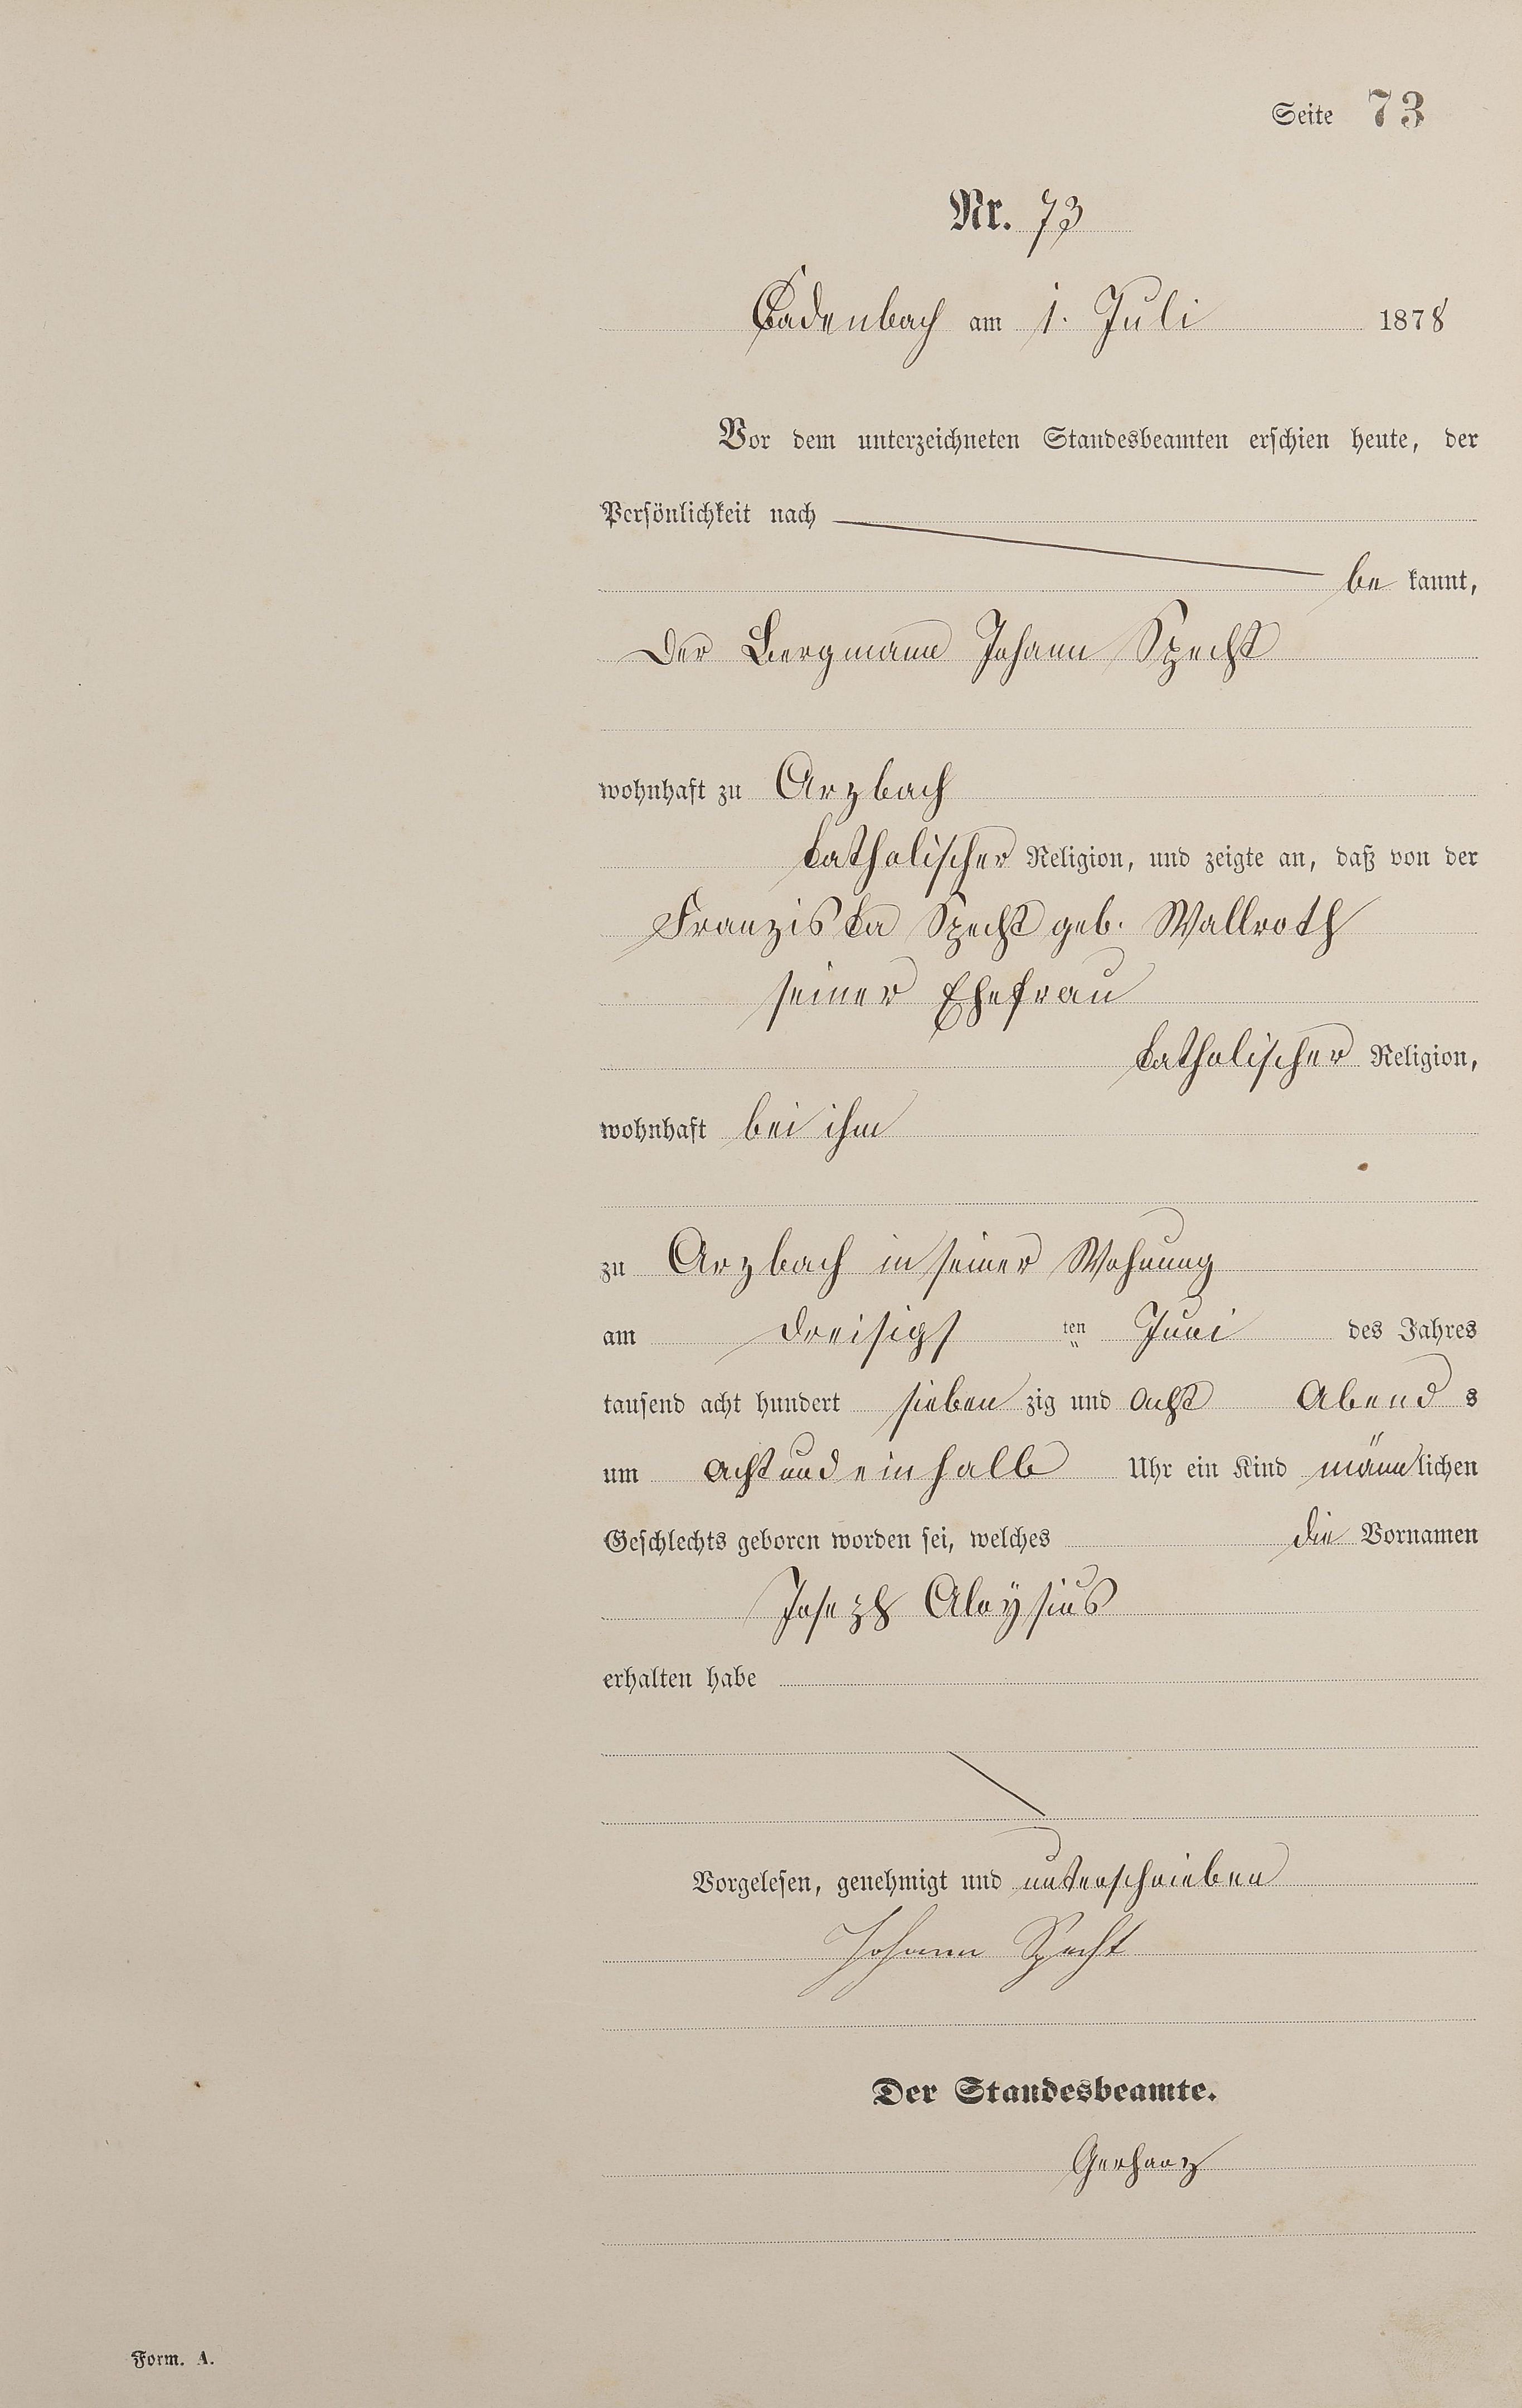 Seite 73
Nr. 73
Cadenbach am 1. Juli 1878
Vor dem unterzeichneten Standesbeamten erschien heute, der
Persönlichkeit nach
be kannt,
der Bergmann Johann Specht
wohnhaft zu Arzbach
katholischer Religion, und zeigte an, daß von der
Franziska Specht geb. Wallroth
seiner Ehefrau
katholischer Religion,
wohnhaft bei ihm
zu Arzbach in seiner Wohnung
am dreisigs ten Juni des Jahres
tausend acht hundert sieben zig und acht Abend s
um acht und ein halb Uhr ein Kind männlichen
Geschlechts geboren worden sei, welches die Vornamen
Joseph Aloÿsius
erhalten habe
Vorgelesen, genehmigt und unterschrieben
Johann Specht
Der Standesbeamte.
Gerharz
Form. A.